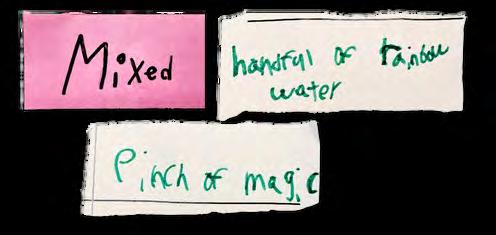 Mixed
handful of rainbow
water
Pinch of magic